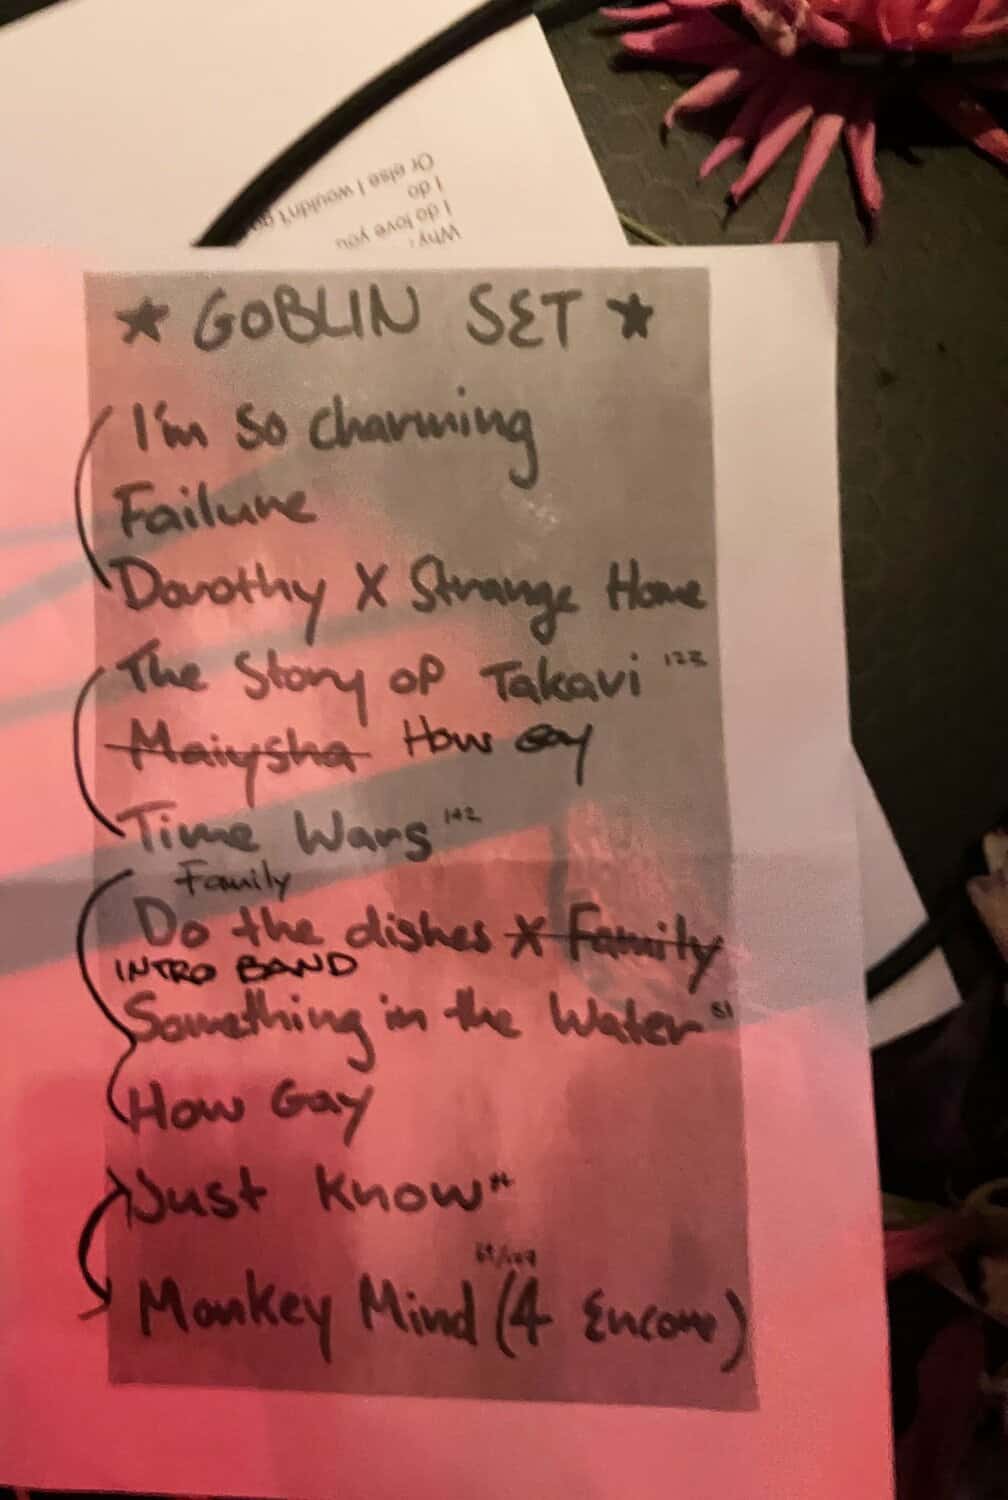 Or else I wouldn't
I do
I do love you
Why?
★ GOBLIN SET ★
I'm so charming
Failure
Dorothy X Strange Home
The Story of Takavi
Maiysha How Gay
Time Wars 142
Family
Do the dishes X Family
INTRO BAND
Something in the Water 81
How Gay
Just Know
Monkey Mind (4 Encore)